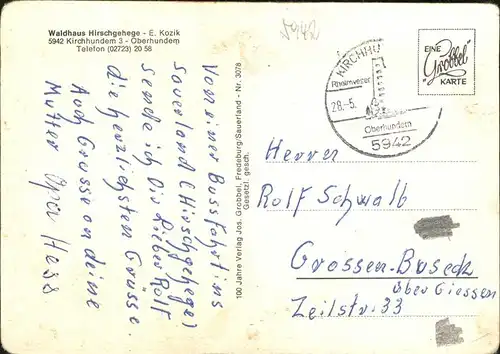 Waldhaus Hirschgehege - E. Kozik
5942 Kirchhundem 3 - Oberhundem
Telefon (02723) 20 58
5942
Von einer Bussfahrt ins
Sauerland (Hirschgehege)
Sende ich Dir Lieber Rolf
die herzlichsten Grüsse.
Auch Grüsse an deine
Mutter Opa Hess
100 Jahre Verlag Jos. Grobbel, Fredeburg/Sauerland - Nr. 3078
Gesetzl. gesch.
KIRCHHU
28.-5.
Oberhundem
5942
EINE
Grobbel
KARTE
Herrn
Rolf Schwalb
Grossen-Buseck
über Giessen
Zeilstr. 33